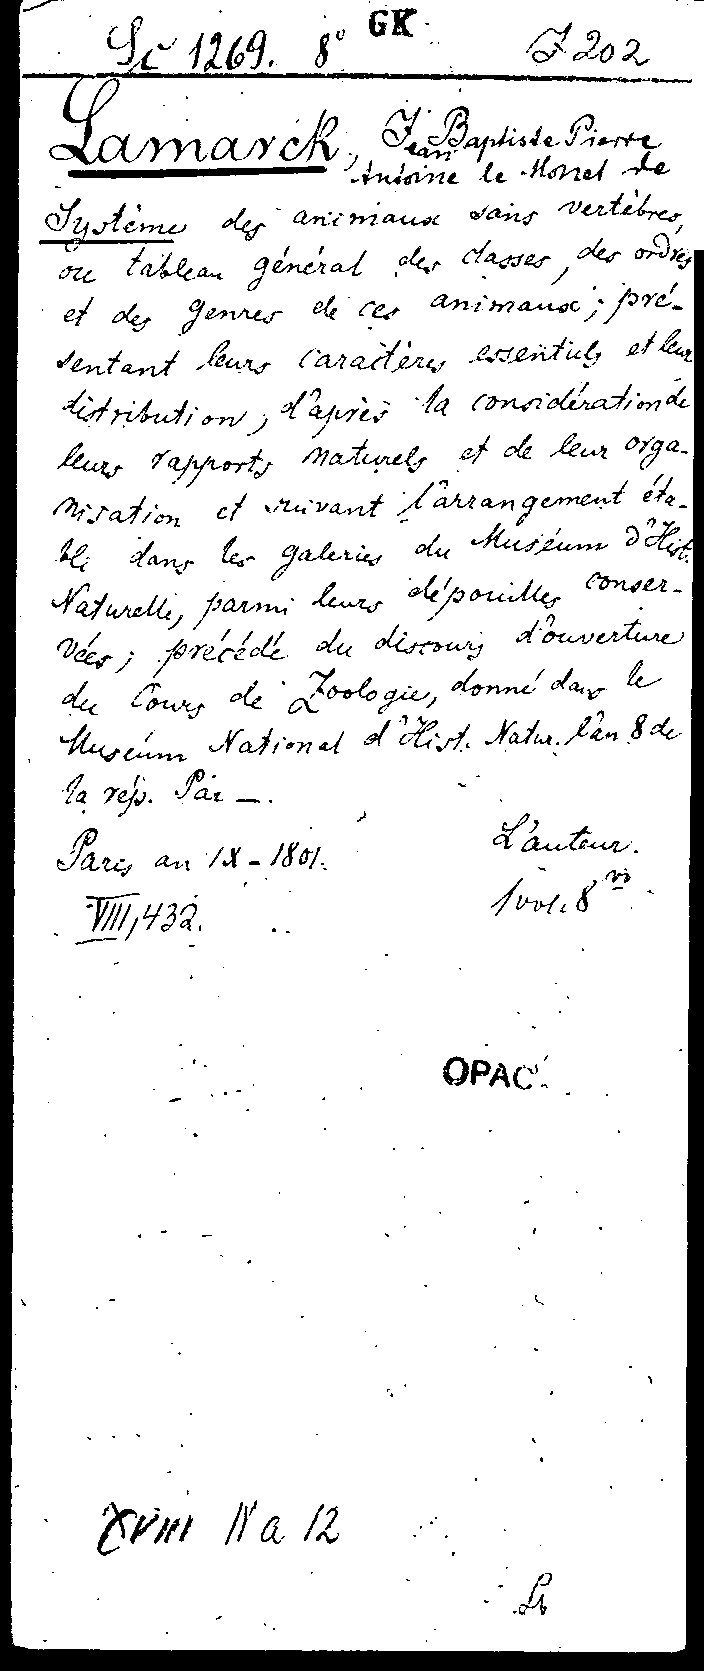 GK
Sc 1269. 8° J 202
Lamarck, Jean Baptiste Pierre
Antoine le Monet de
Système des animaux sans vertèbres,
ou tableau général des classes, des ordres
et des genres de ces animaux; pré-
sentant leurs caractères essentiels et leur
distribution, d'après la considération de
leurs rapports naturels et de leur orga-
nisation et suivant l'arrangement éta-
bli dans les galeries du Muséum d'Hist.
Naturelle, parmi leurs dépouilles conser-
vées; précédé du discours d'ouverture
du Cours de Zoologie, donné dans le
Muséum National d'Hist. Natur. l'an 8 de
la rép. Par —.
Paris an IX - 1801. L'auteur.
VIII, 432. 1 vol. 8 vo
OPAC
XVIII IV a 12